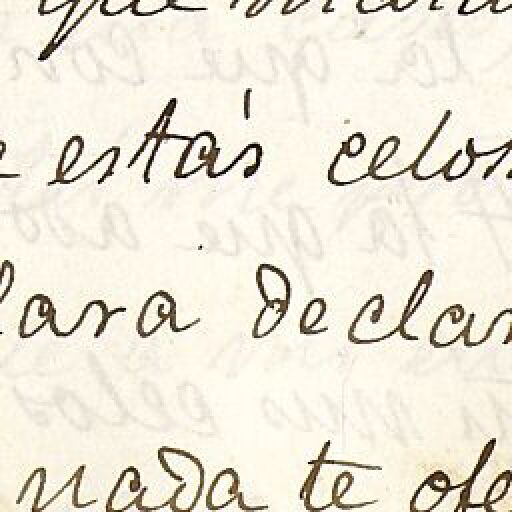 que
estás celos
lara declar
nada te ofe